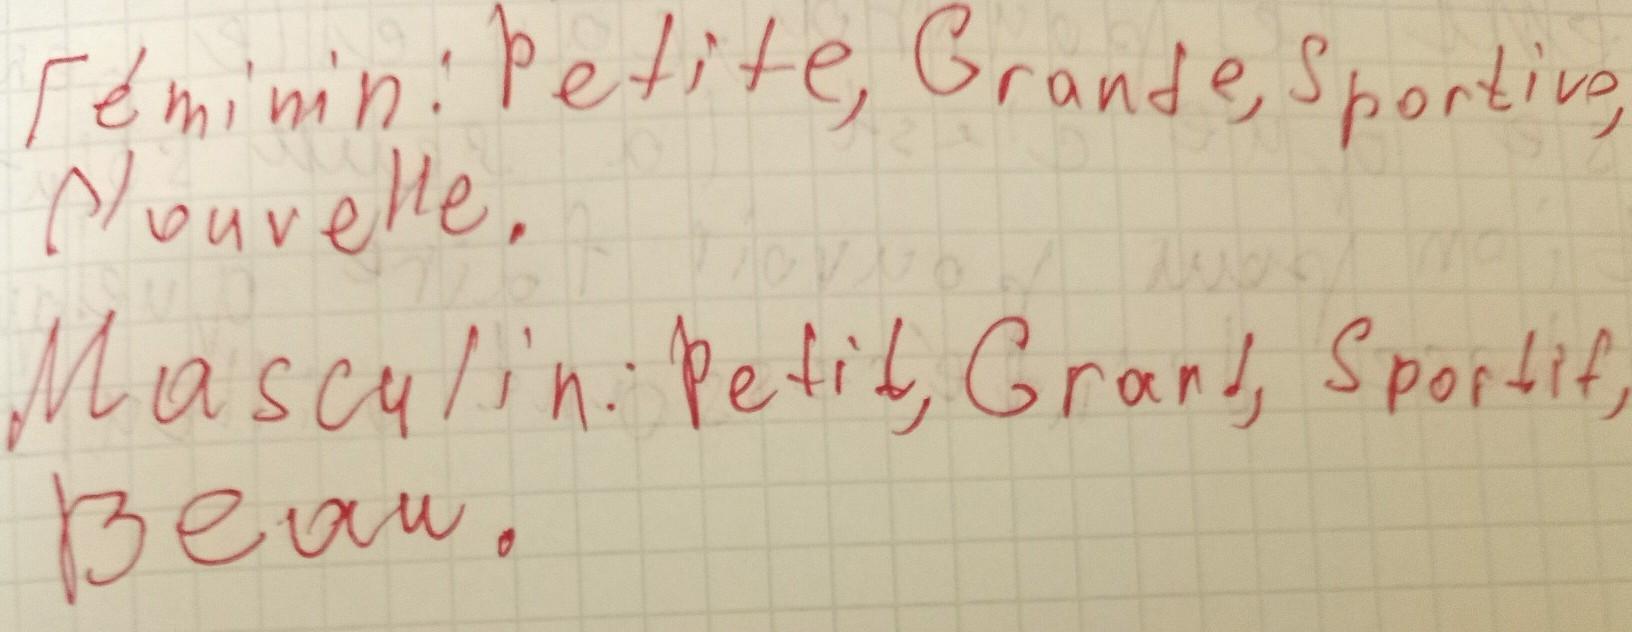 Féminin: Petite, Grande, Sportive,
Nouvelle.
Masculin: Petit, Grand, Sportif,
Beau.